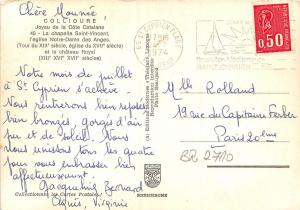 COLLIOURE
Joyau de la Côte Catalane
40 - La chapelle Saint-Vincent,
l'église Notre-Dame des Anges.
(Tour du XIIIe siècle, église du XVIIe siècle)
et le château Royal
(XIIe XVe XVIIe siècles)
Chère Mounié,
Notre mois de juillet
à St Cyprien s'achève.
Nous rentrerons bien reposés
bien bronzés, gorgés d'air
pur et de soleil. Nous nous
unissons tous les quatre
pour vous embrasser bien
affectueusement.
Jacqueline Bernard
Agnès, Virginie
0.50
1974
Mlle Rolland
19 rue du Capitaine Ferber
Paris 20ème
BR 2710